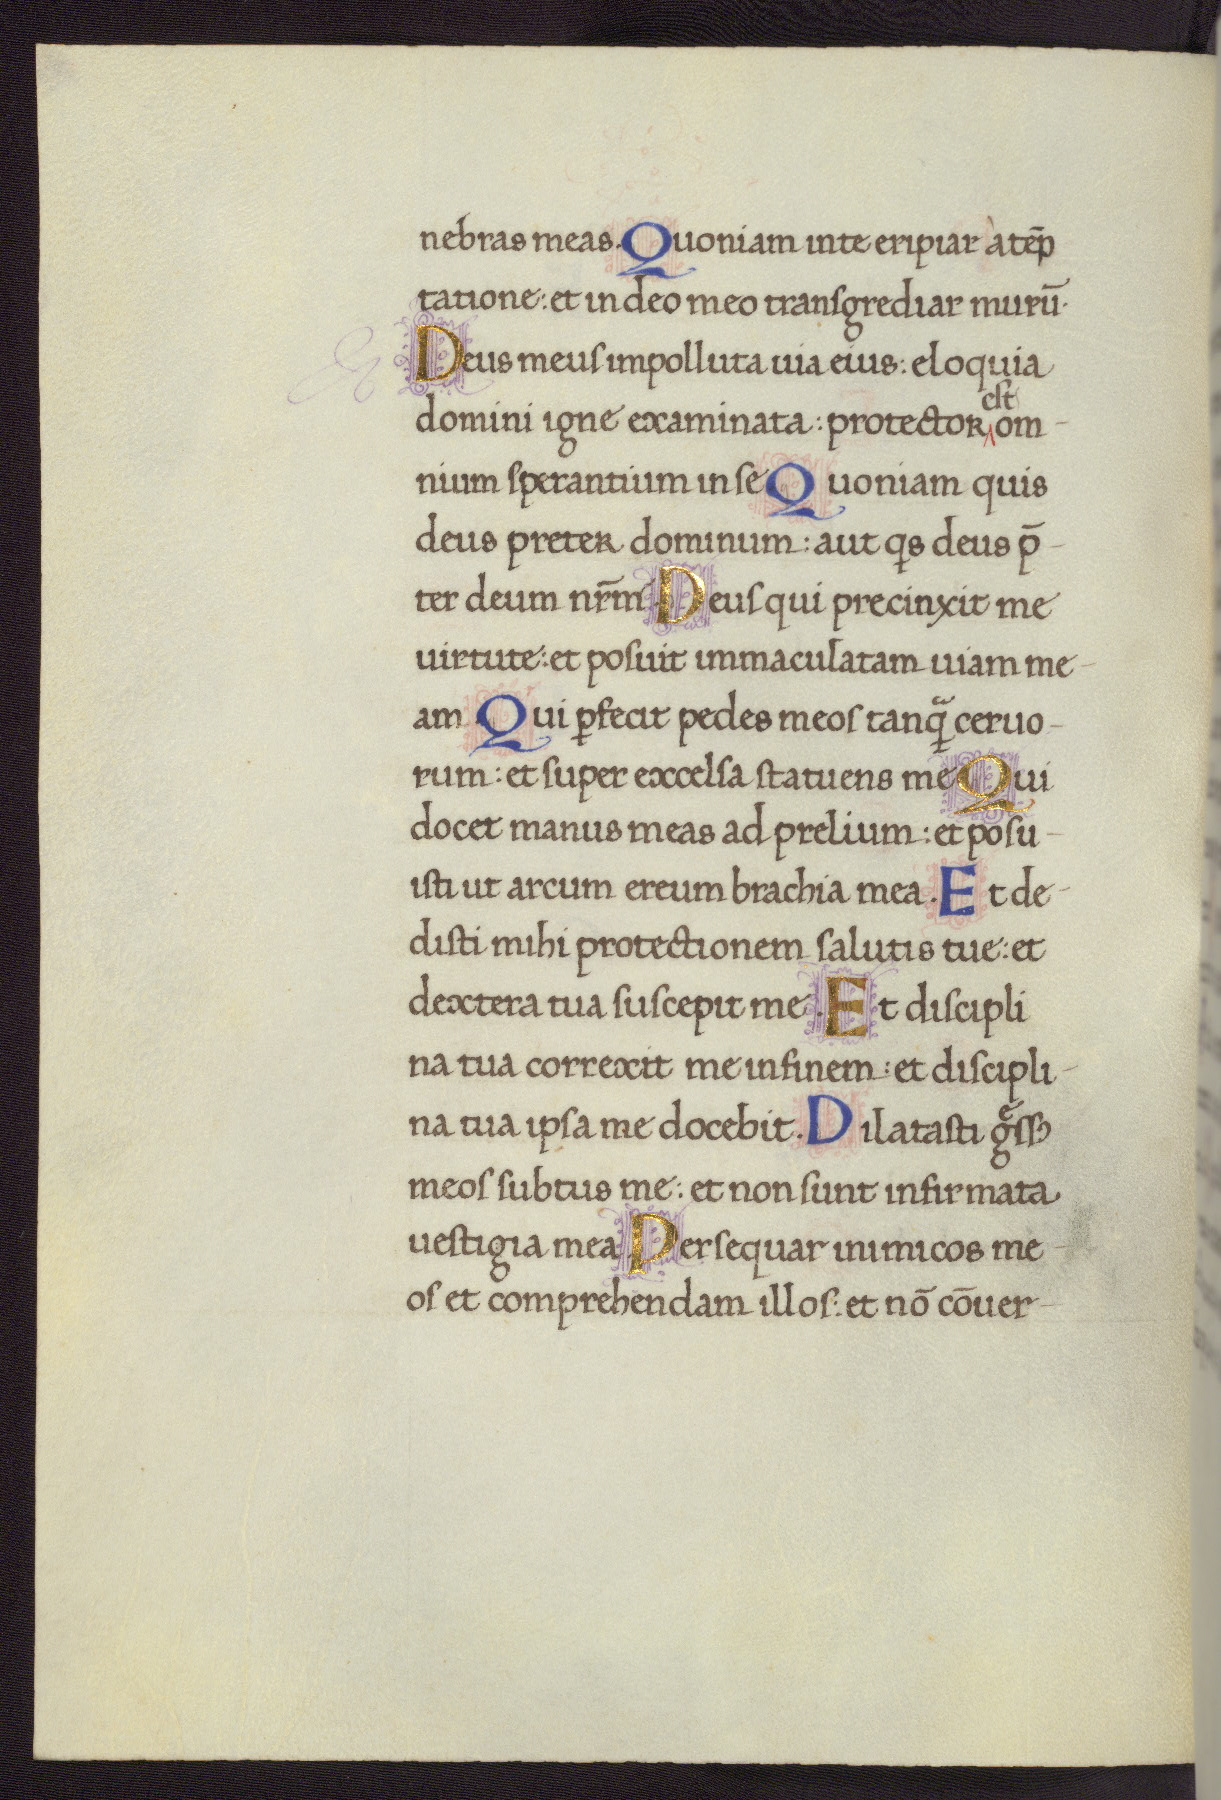 nebras meas. Quoniam in te eripiar a tēp
tatione: et in deo meo transgrediar murū.
Deus meus impolluta uia eius: eloquia
domini igne examinata: protector est om-
nium sperantium in se Quoniam quis
deus preter dominum: aut qs deus p̄-
ter deum nr̄m. Deus qui precinxit me
uirtute: et posuit immaculatam uiam me-
am Qui ꝑfecit pedes meos tanqꝫ ceruo-
rum: et super excelsa statuens me Qui
docet manus meas ad prelium: et posu-
isti ut arcum ereum brachia mea. Et de-
disti mihi protectionem salutis tue: et
dextera tua suscepit me. Et discipli
na tua correxit me in finem: et discipli-
na tua ipsa me docebit. Dilatasti gͤssꝰ
meos subtus me: et non sunt infirmata
uestigia mea Persequar inimicos me-
os et comprehendam illos: et nō cōuer-